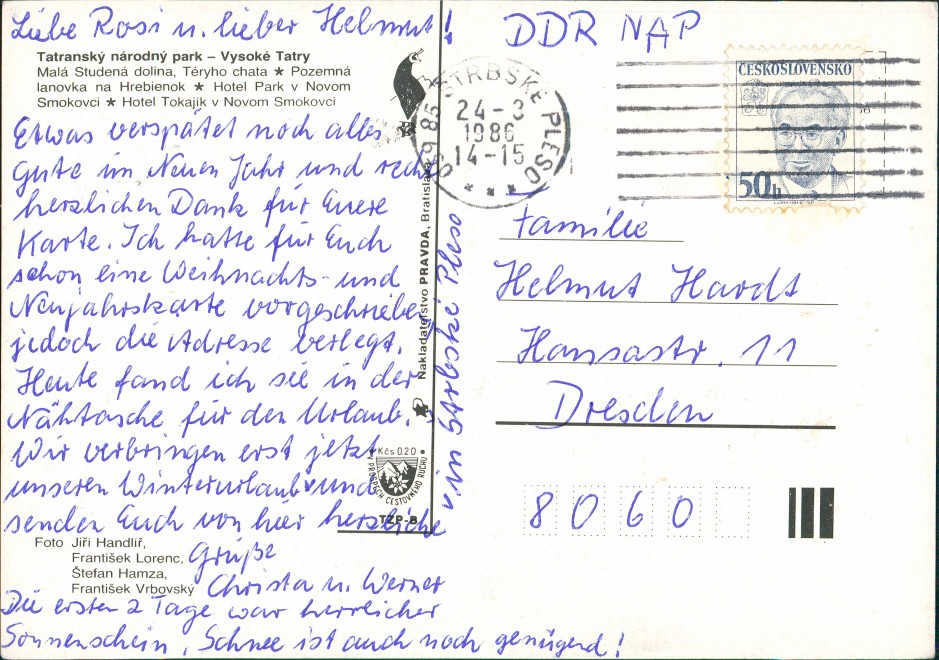 Liebe Rosi u. lieber Helmut!
Tatranský národný park – Vysoké Tatry
Malá Studená dolina, Téryho chata ★ Pozemná
lanovka na Hrebienok ★ Hotel Park v Novom
Smokovci ★ Hotel Tokajík v Novom Smokovci
Etwas verspätet noch alles
Gute im Neuen Jahr und recht
herzlichen Dank für Euere
Karte. Ich hatte für Euch
schon eine Weihnachts- und
Neujahrskarte vorgeschrieben
jedoch die Adresse verlegt.
Heute fand ich see in der
Nähtasche für den Urlaub.
Wir verbringen erst jetzt
unseren Winterurlaub und
v. in Strbské Pleso
senden Euch von hier herzliche
Grüße
Christa u. Werner
Die ersten 2 Tage war herrlicher
Sonnenschein, Schnee ist auch noch genügend!
Foto Jiří Handlíř,
František Lorenc,
Štefan Hamza,
František Vrbovský
Nakladateľstvo PRAVDA, Bratislava
Kčs 0.20
V PROSPECH CESTOVNÉHO RUCHU
TZP-B
DDR NAP
059 85 ŠTRBSKÉ PLESO
24-3
1986
14-15
ČESKOSLOVENSKO
50h
Familie
Helmut Hardt
Hansastr. 11
Dresden
8060